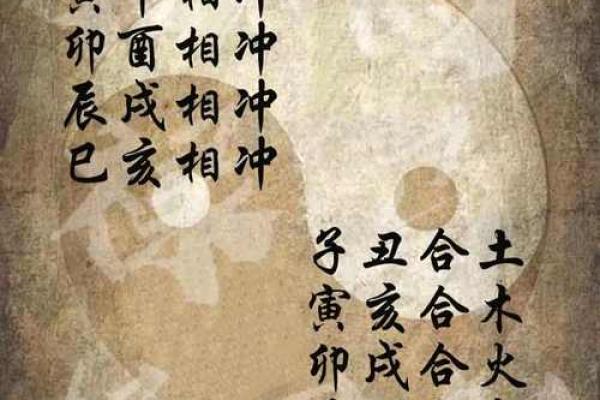 卯酉相冲
辰戌相冲
巳亥相冲
子丑合土
寅亥合木
卯戌合火